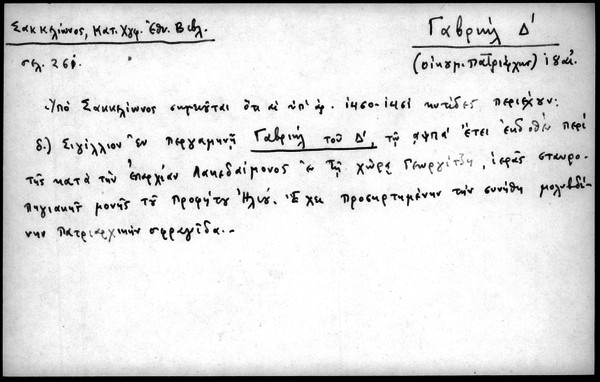 Σακκελίωνος, Κατ. Χγφ. Ἐθν. Βιβλ.
σελ. 261.
Γαβριὴλ Δ'
(οἰκουμ. Πατριάρχης) ιθ αἰ.
Ὑπὸ Σακκελίωνος σημειοῦται ὅτι αἱ ὑπ' ἀρ. 1450-1451 πυξίδες περιέχουν:
δ.) Σιγίλλιον ἐν περγαμηνῇ Γαβριὴλ τοῦ Δ', τῷ αψπα' ἔτει ἐκδοθὲν περὶ
τῆς κατὰ τὴν ἐπαρχίαν Λακεδαίμονος ἐν τῇ χώρᾳ Γεωργίτζῃ, ἱερᾶς σταυρο-
πηγιακῆς μονῆς τοῦ Προφήτου Ἠλιοῦ. Ἔχει προσηρτημένην τὴν συνήθη μολυβδί-
νην Πατριαρχικὴν σφραγῖδα.-